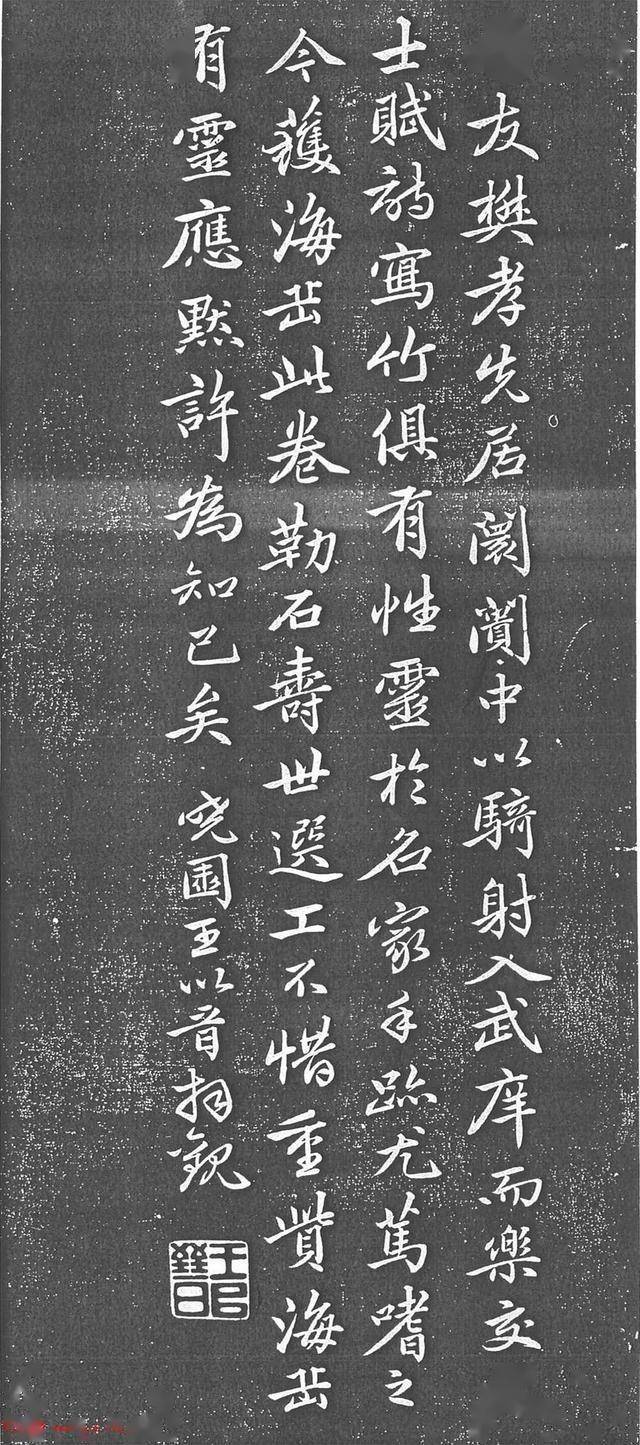 友樊孝先居闤闠中以騎射入武庠而樂交
士賦詩寫竹俱有性靈於名家手跡尤篤嗜之
今獲海岳此卷勒石壽世選工不惜重貲海岳
有靈應默許為知己矣 曉園王以拜觀